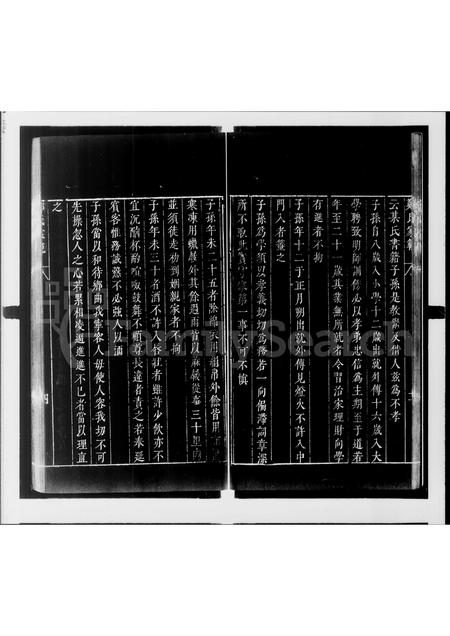 云某氏書籍子孫是教鬻及借人茲為不孝
子孫自八歲入小學十二歲出就外傅十六歲入大
學聘致明師訓飭必以孝弟忠信為主期至于道若
年至二十一歲其業無所就者令習治家理財向學
有進者不拘
子孫年十二于正月朔出就外傅見燈火不許入中
門入者箠之
子孫為學須以孝義切切為務若一向偏滯詞章深
所不取此實守家第一事不可不慎
子孫年未二十五者除綿衣用絹帛外餘皆用
寒凍用蠟屐外其餘遇雨皆以麻屐從事三十里內
並須徒走初到姻親家者不拘
子孫年未三十者酒不許入唇壯者雖許少飲亦不
宜沉酗杯酌喧呶鼓舞不顧尊長違者責之若奉延
賓客惟務誠愨不必強人以酒
子孫當以和待鄉曲我寧容人毋使人容我切不可
先操忽人之心若累相凌逼進進不已者當以理直
之
FamilySearch